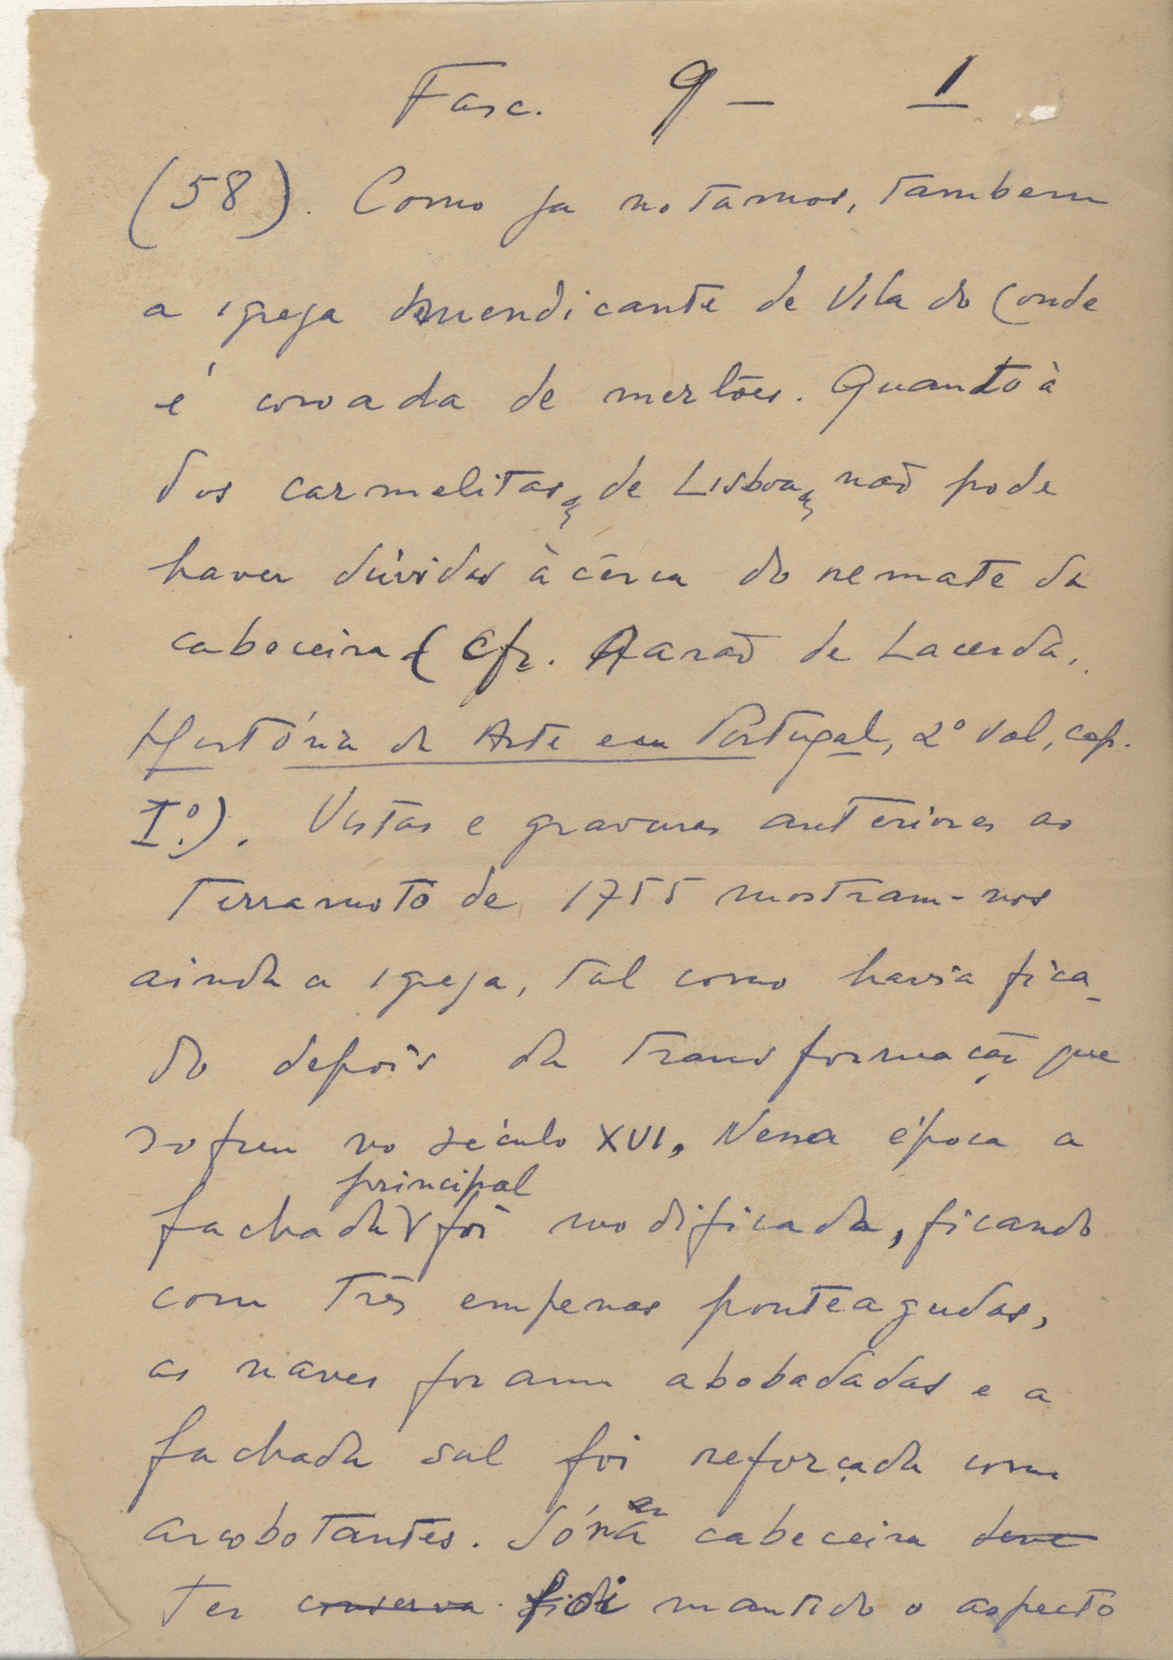 Fasc. 9 — 1
(58). Como ja notamos, tambem
a igreja mendicante de Vila do Conde
é coroada de merlões. Quanto à
dos carmelitas, de Lisboa, não pode
haver dúvidas àcêrca do remate da
cabeceira (Cfr. Aarão de Lacerda,
História da Arte em Portugal, 2º vol, cap.
Iº.). Vistas e gravuras anteriores ao
Terramoto de 1755 mostram-nos
ainda a igreja, tal como havia fica-
do depois da transformação que
sofreu no século XVI. Nessa época a
principal
fachada foi modificada, ficando
com três empenas ponteagudas,
as naves foram abobadadas e a
fachada sul foi reforçada com
arcobotantes. Só na cabeceira deve
ter conserva foi mantido o aspecto